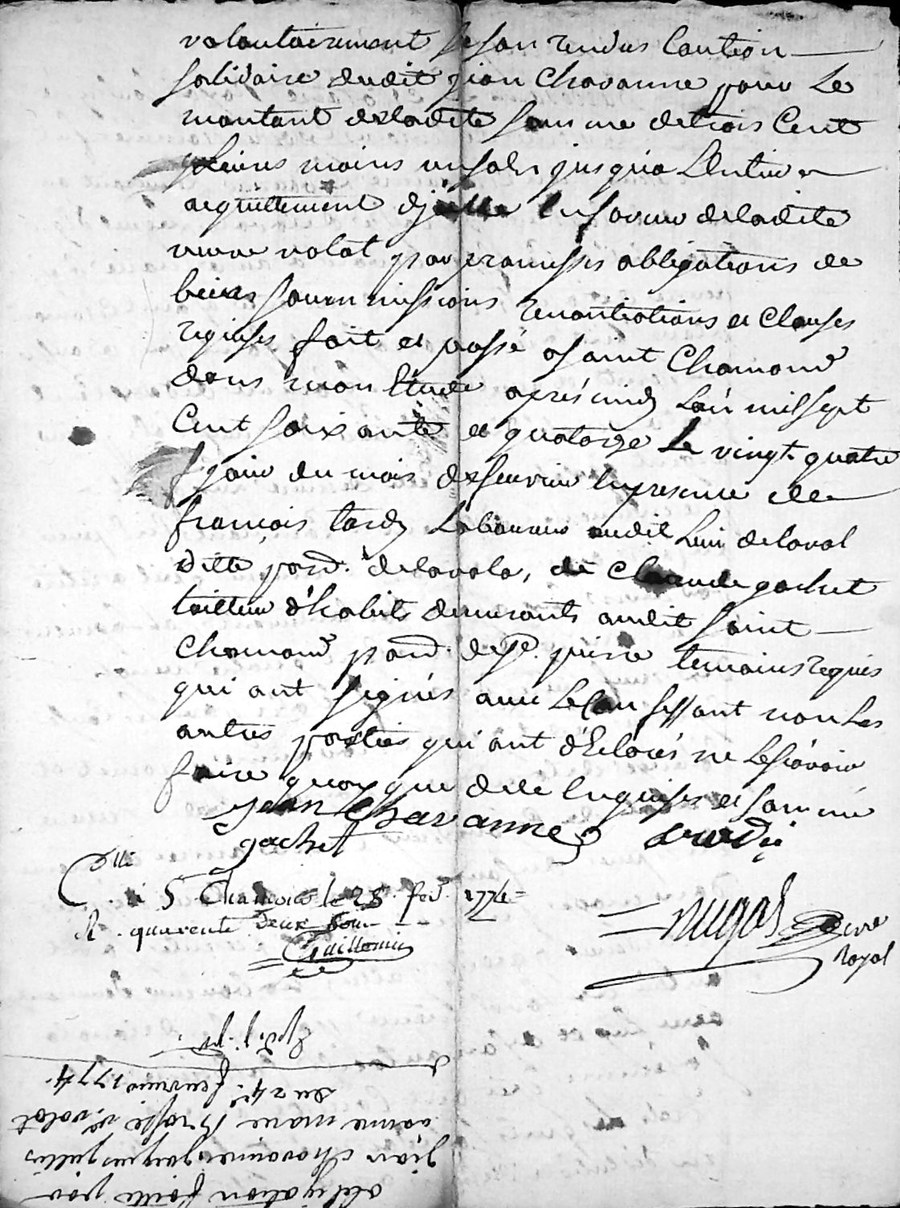 volontairement se son rendus Caution
solidaire dudit jean Chavanne pour Le
montant deladite somme de trois Cent
livres moins un sols jusqua Lentier
acquittement djcelle en faveur deladite
veuve volat par promesses obligations de
biens soummissions renontiations et Clauses
requises fait et passé a saint Chamond
dans mon Etude aprés midy Lan mil sept
Cent soixante et quatorze Le vingt quatre
jour du mois defeuvrier En presence de
francois tardy Laboureur audit Lieu delaval
ditte parr. delavala, de Claude gachet
tailleur d'habits demeurants audit saint
Chamond parr. de St. pierre temoins requis
qui ont signés avec Le Confessant non Les
autres parties qui ont déClarés ne Le sçavoir
faire quoy que de ce Enquises et sommé
jean Chavanne tardy
gachet
Clle
a St Chamond le 28. fevr. 1774
R. quarente deux sou
Guillomin
Dugas nore
Royal
obligation faitte par
jean chavanne
anne marie Brosse ve. volat
du 24e. feuvrier 1774.